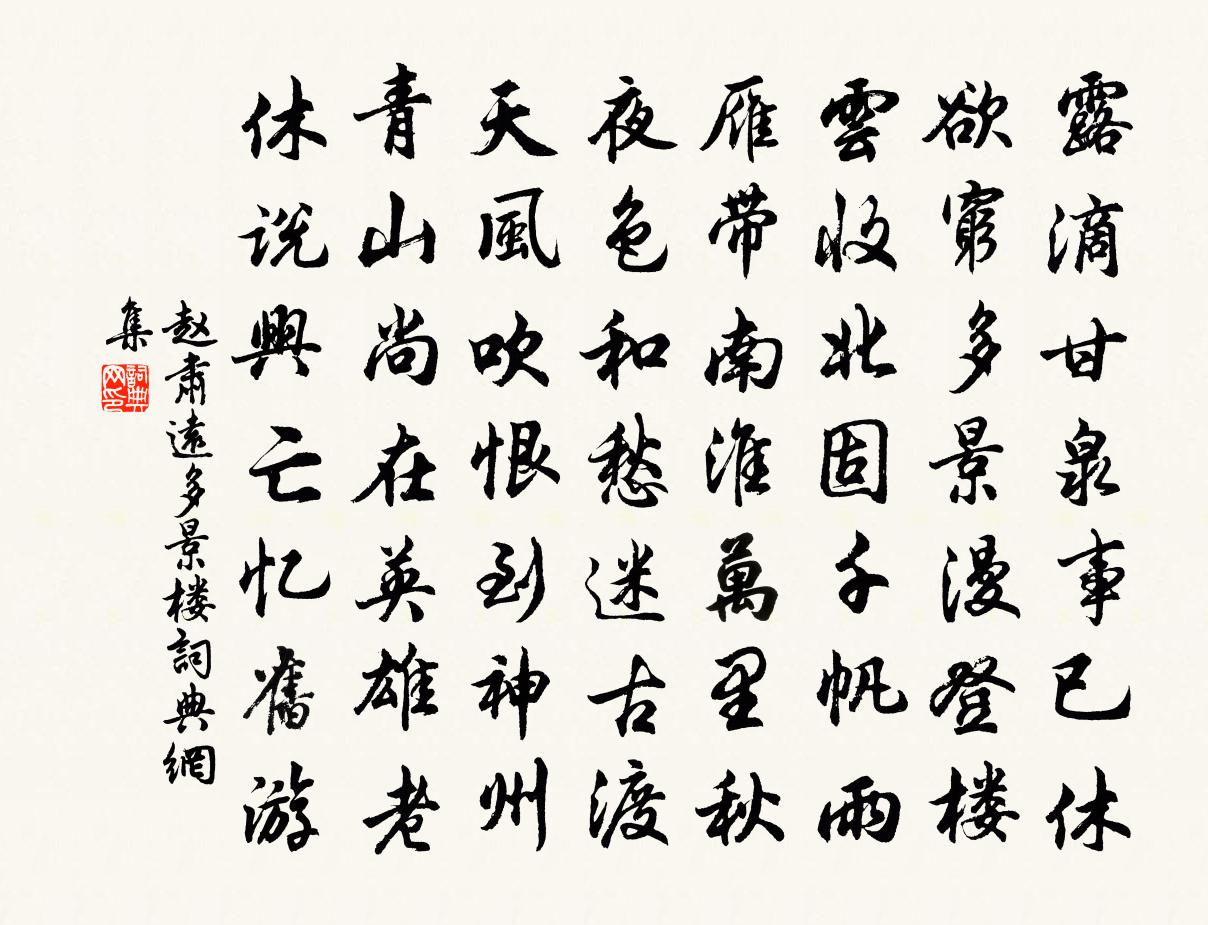 露滴甘泉事已休
欲窮多景漫登楼
雲收北固千帆雨
雁帶南淮萬里秋
夜色和愁迷古渡
天風吹恨到神州
青山尚在英雄老
休説興亡忆舊游
赵肅遠多景楼詞典網
集
詞典
网印